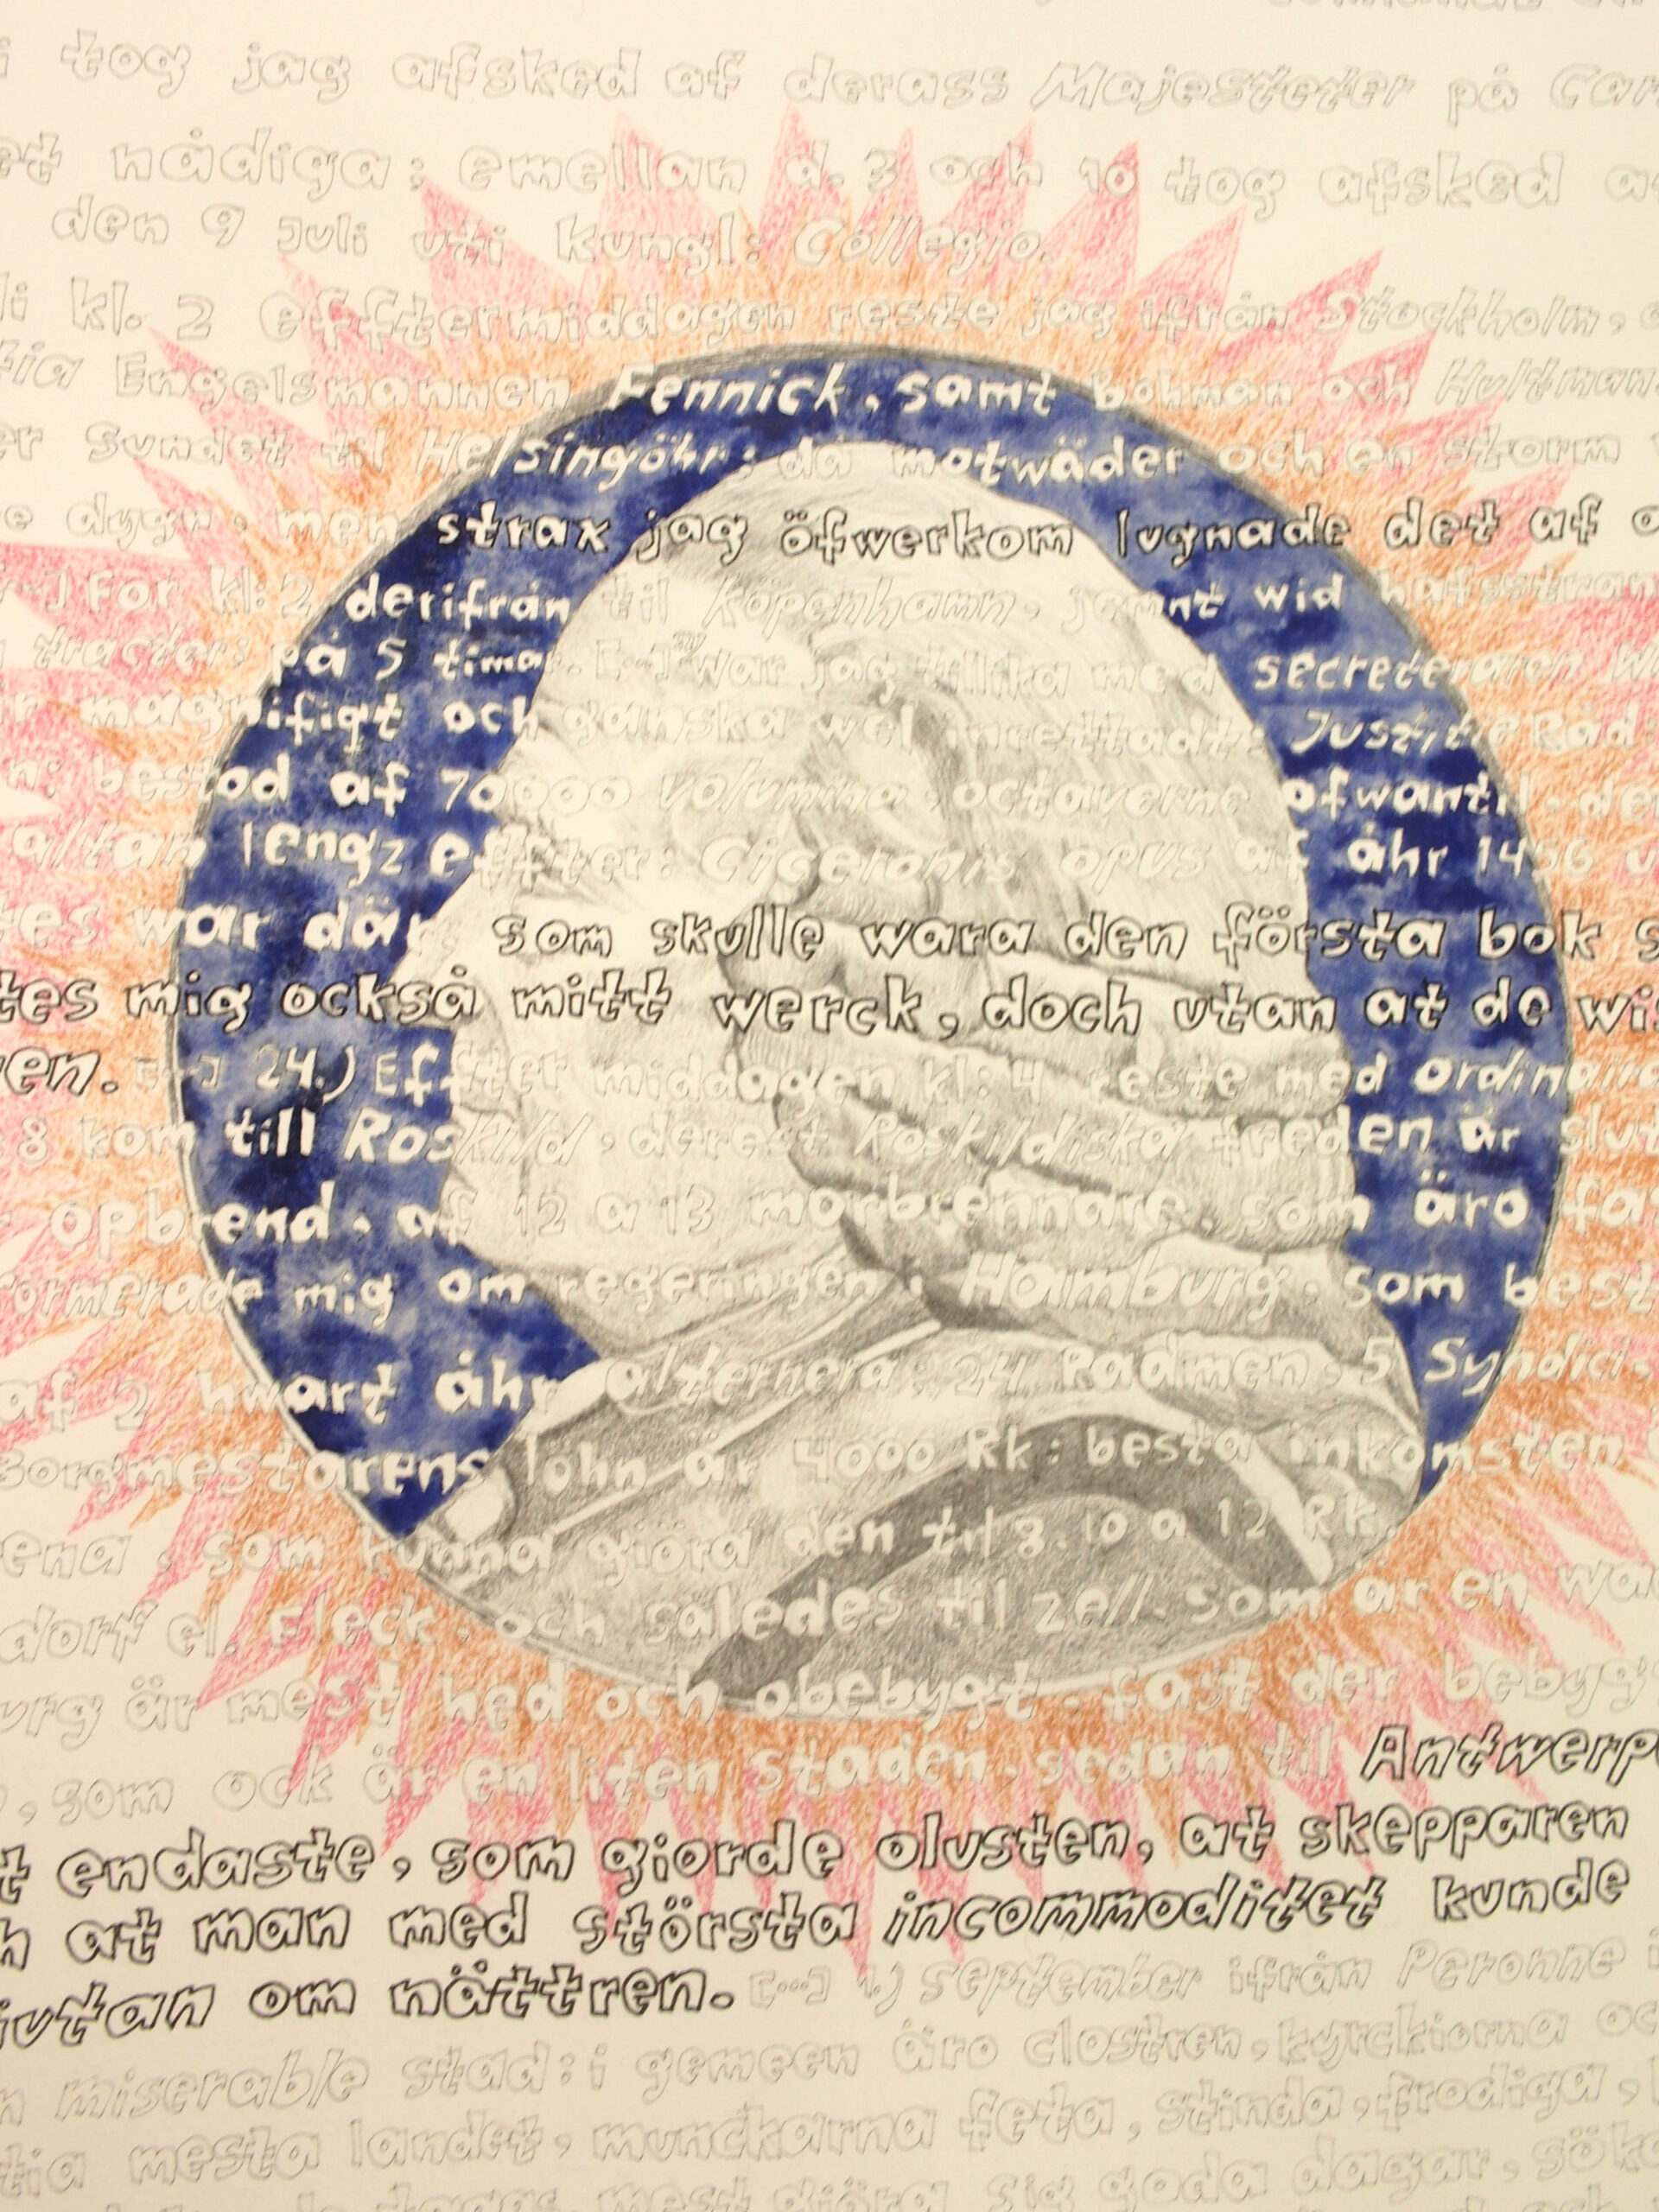 i tog jag afsked af derass Majesteter på Car
et nådiga: emellan d. 3 och 10 tog afsked a
den 9 Juli uti Kungl: Collegio.
li kl. 2 efftermiddagen reste jag ifrån Stockholm,
tia Engelsmannen Fennick, samt Bohman och Hultman
er Sundet til Helsingöhr: då motwäder och en storm
e dygn, men strax jag öfwerkom lugnade det af
[...] For kl: 2 derifrån til Köpenhamn, jemnt wid hafsstran
tracter: på 5 timar. [...] war jag tillika med secreteraren
r magnifiqt och ganska wel inrettadt: Justitie Råd
n: bestod af 70000 volumina, octaverne ofwantil
altan lengz effter: Ciceronis opus af åhr 1456
tes war där, som skulle wara den första bok s
tes mig också mitt werck, doch utan at de wis
en. [...] 24.) Effter middagen kl: 4 reste med ordinaire
8 kom till Roskild, derest Roskildiska freden är slut
opbrend, af 12 a 13 morbrennare, som äro fa
formerade mig om regeringen i Hamburg, som best
af 2 hwart åhr alternera: 24 Rådmen, 5 Syndici,
Borgmestarens löhn är 4000 Rk: besta inkomsten
ena, som kunna giöra den til 8. 10 a 12 Rk.
dorf el. Fleck, och således til Zell, som är en wa
urg är mest hed och obebygt, fast der bebygg
, som ock är en liten staden, sedan til Antwerp
t endaste, som giorde olusten, at skepparen
h at man med största incommoditet kunde
iutan om nättren. [...] 1.) September ifrån Peronne i
n miserable stad: i gemeen äro clostren, kyrckiorna oc
tia mesta landet, munckarna feta, stinda, frodiga,
mest giöra sig goda dagar, sök